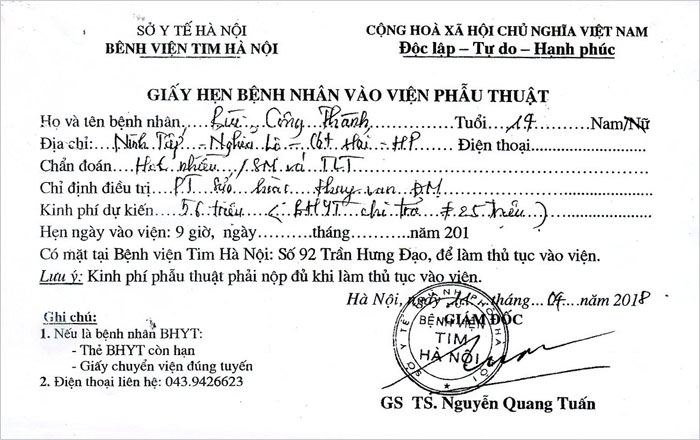 SỞ Y TẾ HÀ NỘI
BỆNH VIỆN TIM HÀ NỘI
CỘNG HOÀ XÃ HỘI CHỦ NGHĨA VIỆT NAM
Độc lập – Tự do – Hạnh phúc
GIẤY HẸN BỆNH NHÂN VÀO VIỆN PHẪU THUẬT
Họ và tên bệnh nhân Bùi Công Thành Tuổi 14 Nam/Nữ
Địa chỉ: Ninh Tiếp - Nghĩa Lộ - Cát Hải - HP Điện thoại
Chẩn đoán HoC nhiều / SM và TLT
Chỉ định điều trị PT sửa hoặc thay van ĐM
Kinh phí dự kiến 56 triệu ( BHYT chi trả ≠ 25 triệu )
Hẹn ngày vào viện: 9 giờ, ngày............tháng............năm 201
Có mặt tại Bệnh viện Tim Hà Nội: Số 92 Trần Hưng Đạo, để làm thủ tục vào viện.
Lưu ý: Kinh phí phẫu thuật phải nộp đủ khi làm thủ tục vào viện.
Hà Nội, ngày tháng 04 năm 2018
GIÁM ĐỐC
SỞ Y TẾ THÀNH PHỐ HÀ NỘI
BỆNH VIỆN
TIM
HÀ NỘI
Ghi chú:
1. Nếu là bệnh nhân BHYT:
- Thẻ BHYT còn hạn
- Giấy chuyển viện đúng tuyến
2. Điện thoại liên hệ: 043.9426623
GS TS. Nguyễn Quang Tuấn